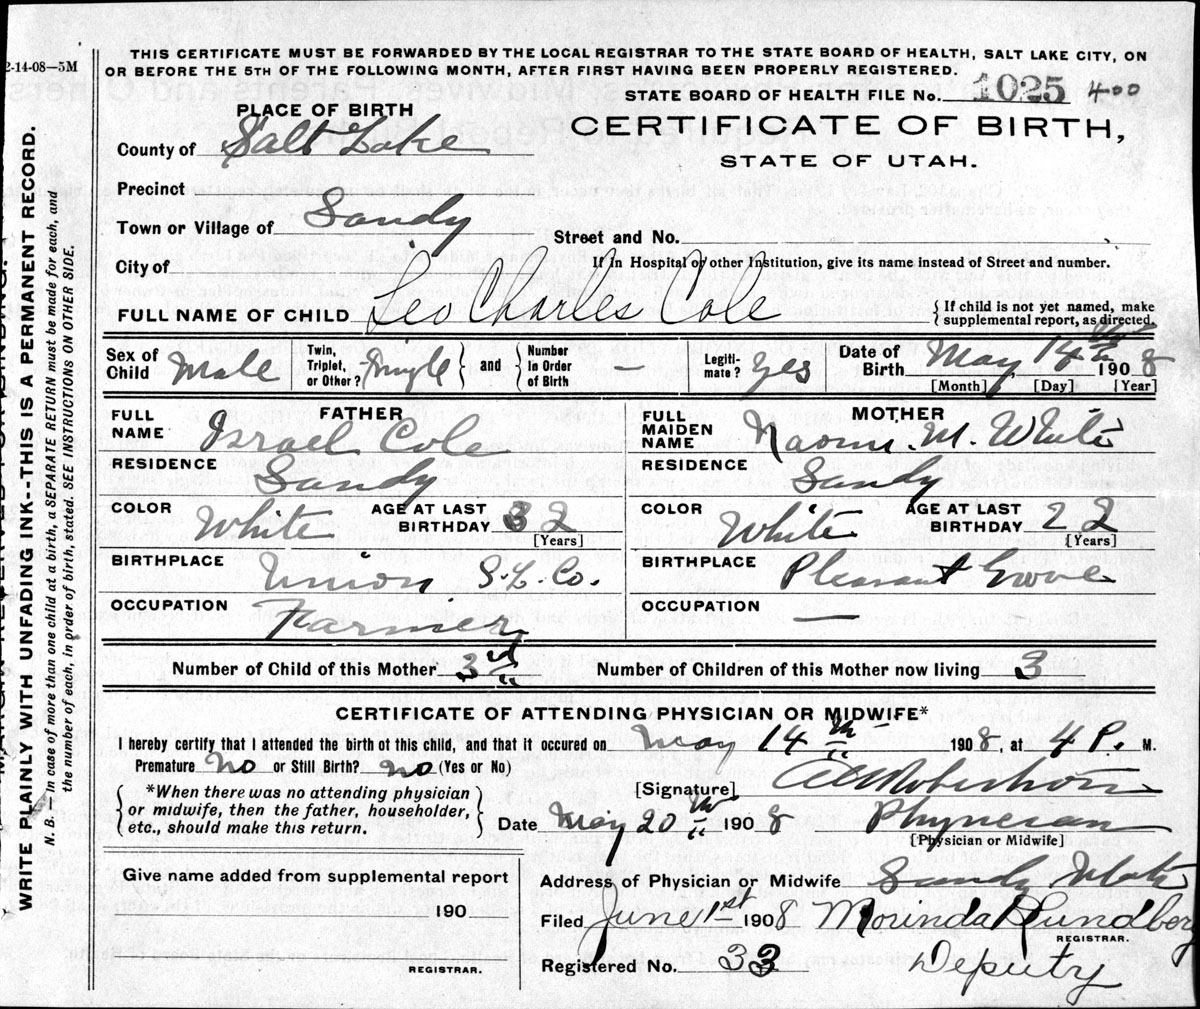 THIS CERTIFICATE MUST BE FORWARDED BY THE LOCAL REGISTRAR TO THE STATE BOARD OF HEALTH, SALT LAKE CITY, ON
OR BEFORE THE 5TH OF THE FOLLOWING MONTH, AFTER FIRST HAVING BEEN PROPERLY REGISTERED.
2-14-08—5M
STATE BOARD OF HEALTH FILE No. 1025 400
PLACE OF BIRTH
CERTIFICATE OF BIRTH,
STATE OF UTAH.
County of Salt Lake
Precinct
Town or Village of Sandy
Street and No.
City of
If in Hospital or other Institution, give its name instead of Street and number.
FULL NAME OF CHILD Leo Charles Cole
{ If child is not yet named, make
supplemental report, as directed.
Sex of Child Male
Twin, Triplet, or Other? Single } and { Number in Order of Birth —
Legitimate? Yes
Date of Birth May 14th 1908
[Month] [Day] [Year]
FATHER
FULL NAME Israel Cole
RESIDENCE Sandy
COLOR White AGE AT LAST BIRTHDAY 32 [Years]
BIRTHPLACE Union S. L. Co.
OCCUPATION Farmer
MOTHER
FULL MAIDEN NAME Naomi. M. White
RESIDENCE Sandy
COLOR White AGE AT LAST BIRTHDAY 22 [Years]
BIRTHPLACE Pleasant Grove
OCCUPATION —
Number of Child of this Mother 3rd Number of Children of this Mother now living 3
CERTIFICATE OF ATTENDING PHYSICIAN OR MIDWIFE*
I hereby certify that I attended the birth of this child, and that it occured on May 14th 1908, at 4 P. M.
Premature No or Still Birth? no (Yes or No)
[Signature] Robertson
{ *When there was no attending physician
or midwife, then the father, householder,
etc., should make this return. }
Date May 20th 1908 Physician
[Physician or Midwife]
Give name added from supplemental report
190
REGISTRAR.
Address of Physician or Midwife Sandy Utah
Filed June 1st 1908 Morinda R Lundberg
REGISTRAR.
Registered No. 33 Deputy
WRITE PLAINLY WITH UNFADING INK--THIS IS A PERMANENT RECORD.
N. B. — In case of more than one child at a birth, a SEPARATE RETURN must be made for each, and
the number of each, in order of birth, stated. SEE INSTRUCTIONS ON OTHER SIDE.